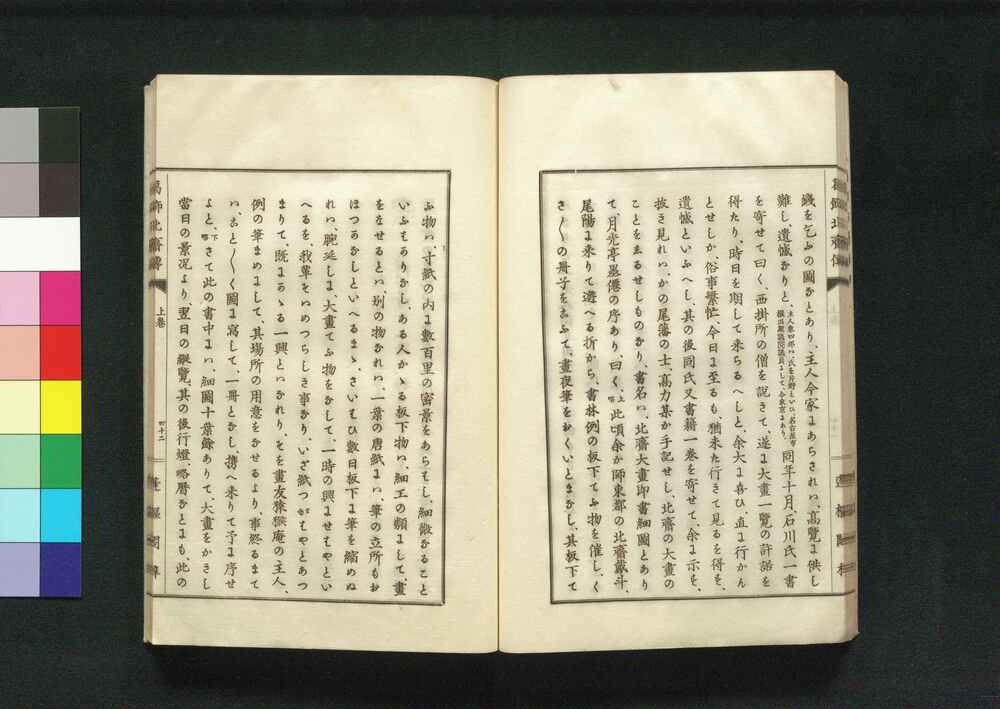 錢を乞ふの圖なとあり、主人今家にあらされハ、高覽に供し
難し遺憾なりと、主人東四郎ハ、氏を片野といひ、名古屋市
撰出衆議院議員として、今東京にあり、
同年十月、石川氏一書
を寄せて曰く、西掛所の僧を説きて、遂に大畫一覽の許諾を
得たり、時日を期して来らるへしと、余大に喜ひ、直に行かん
とせしか、俗事繁忙、今日に至るも、猶未た行きて見るを得を、
遺憾といふへし、其の後同氏又書籍一巻を寄せて、余に示を、
抜き見れハ、かの尾藩の士、髙力某か手記せし、北斎の大畫の
ことを志るせしものなり、書名ハ、北斎大畫即書細圖とあり
て、月光亭墨僊の序あり、曰く、上略此頃余か師東都の北斎戴斗、
尾陽に来りて遊へる折から、書林例の板下てふ物を催し、く
さ〳〵の冊子をこふて、晝夜筆をおくいとまなし、其板下て
ふ物ハ、寸紙の内に數百里の密景をあらそし、細微なること
いふもさらなし、ある人かゝる板下物ハ、細工の類にして、畫
をなせるとハ、別の物なれハ、一葉の唐紙にハ、筆の立所もお
ほつかなしといへるまゝ、さいもひ數日板下に筆を縮めぬ
れハ、腕延しに、大畫てふ物をなして、一時の興にせもやとい
へるを、我輩をいめつらしき事なり、いざ紙つがもやとあつ
まりて、既にあゝる一興とハなれり、そを畫友猿猴庵の主人、
例の筆まめにして、其場所の用意をなせるより、事終るまて
ハ、こと〳〵く圖に寫して、一冊となし、携へ来りて予に序せ
よと、下略さて此の書中にハ、細圖十葉餘ありて、大畫をかきし
當日の景况より、翌日の縦覽、其の後行燈、略暦なとにも、此の
上卷
四十二